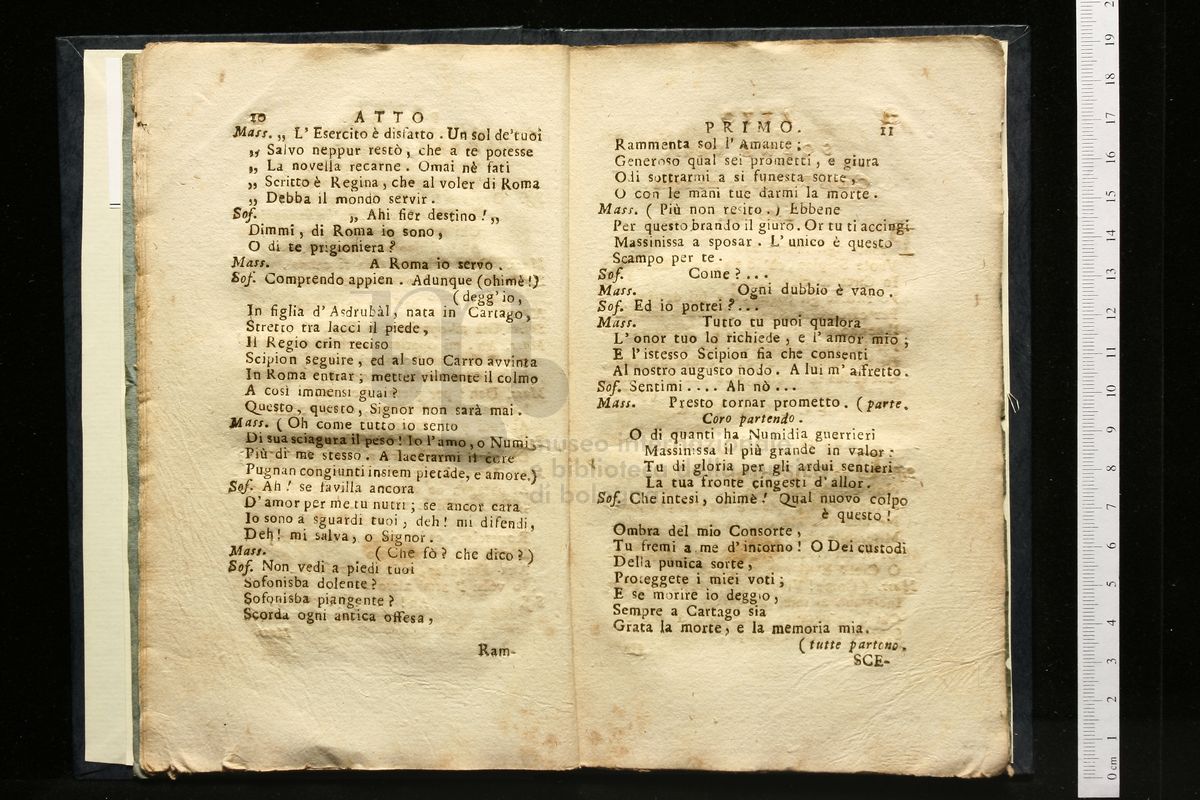 10 ATTO
Mass. „ L' Esercito è disfatto . Un sol de'tuoi
„ Salvo neppur restò, che a te potesse
„ La novella recarne . Omai nè fati
„ Scritto è Regina, che al voler di Roma
„ Debba il mondo servir .
Sof. „ Ahi fier destino ! „
Dimmi, di Roma io sono,
O di te prigioniera ?
Mass. A Roma io servo .
Sof. Comprendo appien . Adunque (ohimè!)
( degg' io,
In figlia d' Asdrubàl, nata in Cartago,
Stretto tra lacci il piede,
Il Regio crin reciso
Scipion seguire, ed al suo Carro avvinta
In Roma entrar ; metter vilmente il colmo
A così immensi guai ?
Questo, questo, Signor non sarà mai .
Mass. ( Oh come tutto io sento
Di sua sciagura il peso ! Io l'amo, o Numi
Più di me stesso . A lacerarmi il core
Pugnan congiunti insiem pietade, e amore.)
Sof. Ah ! se favilla ancora
D' amor per me tu nutri ; se ancor cara
Io sono a sguardi tuoi, deh ! mi difendi,
Deh! mi salva, o Signor .
Mass. ( Che fò ? che dico ? )
Sof. Non vedi a piedi tuoi
Sofonisba dolente ?
Sofonisba piangente ?
Scorda ogni antica offesa,
Ram-
PRIMO. 11
Rammenta sol l' Amante ;
Generoso qual sei prometti, e giura
O di sottrarmi a si funesta sorte,
O con le mani tue darmi la morte .
Mass. ( Più non resito . ) Ebbene
Per questo brando il giuro. Or tu ti accingi
Massinissa a sposar . L' unico è questo
Scampo per te .
Sof. Come ? . . .
Mass. Ogni dubbio è vano .
Sof. Ed io potrei ? . . .
Mass. Tutto tu puoi qualora
L' onor tuo lo richiede, e l' amor mio ;
E l' istesso Scipion fia che consenti
Al nostro augusto nodo . A lui m' affretto .
Sof. Sentimi . . . . Ah nò . . .
Mass. Presto tornar prometto . ( parte .
Coro partendo .
O di quanti ha Numidia guerrieri
Massinissa il più grande in valor :
Tu di gloria per gli ardui sentieri
La tua fronte cingesti d' allor .
Sof. Che intesi, ohimè ! Qual nuovo colpo
è questo !
Ombra del mio Consorte,
Tu fremi a me d' intorno ! O Dei custodi
Della punica sorte,
Proteggete i miei voti ;
E se morire io deggio,
Sempre a Cartago sia
Grata la morte, e la memoria mia .
( tutte partono .
SCE-
museo internazionale
e biblioteca
di bologna
0 cm 1 2 3 4 5 6 7 8 9 10 11 12 13 14 15 16 17 18 19 2